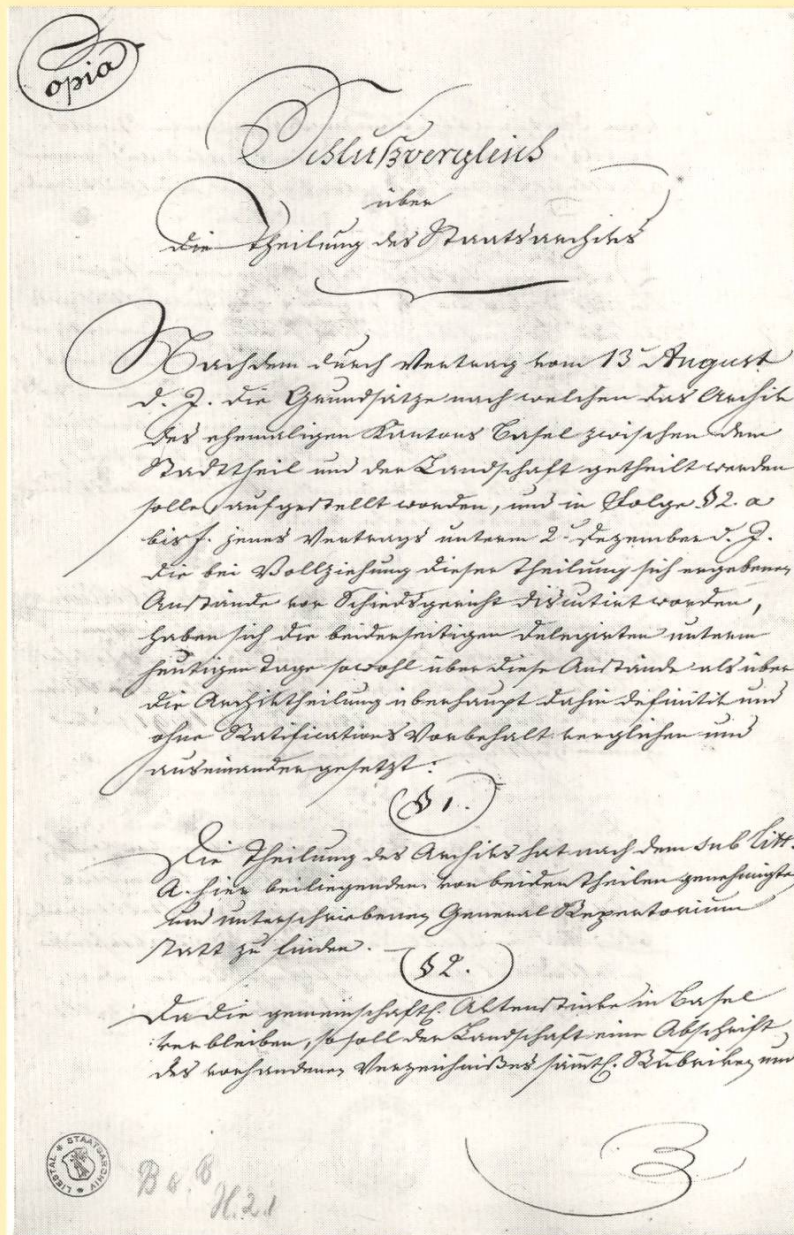 Copia
Schlußvergleich
über
die Theilung des Staatsarchives
Nachdem durch Vertrag vom 13n August
d. J. die Grundsätze nach welchen das Archiv
des ehemaligen Kantons Basel zwischen dem
Stadttheil und der Landschaft getheilt werden
solle, aufgestellt worden, und in Folge § 2. a
bis f. jenes Vertrags unterm 2n Dezember d. J.
die bei Vollziehung dieser Theilung sich ergebenen
Anstände vor Schiedsgericht discutirt worden,
haben sich die beiderseitigen Delegirten unterm
heutigen Tage sowohl über diese Anstände als über
die Archivtheilung überhaupt dahin definitiv und
ohne Ratifications Vorbehalt verglichen und
auseinander gesetzt:
§ 1.
Die Theilung des Archives hat nach dem sub Litt.
A. hier beiliegenden von beiden Theilen genehmigten
und unterschriebenen General Repertorium
statt zu finden.
§ 2.
Da die gemeinschaftl. Aktenstücke in Basel
verbleiben, so soll der Landschaft eine Abschrift
des vorhandenen Verzeichnißes sämtl. Rubriken und
STAATSARCHIV * LIESTAL *
H. 2.1